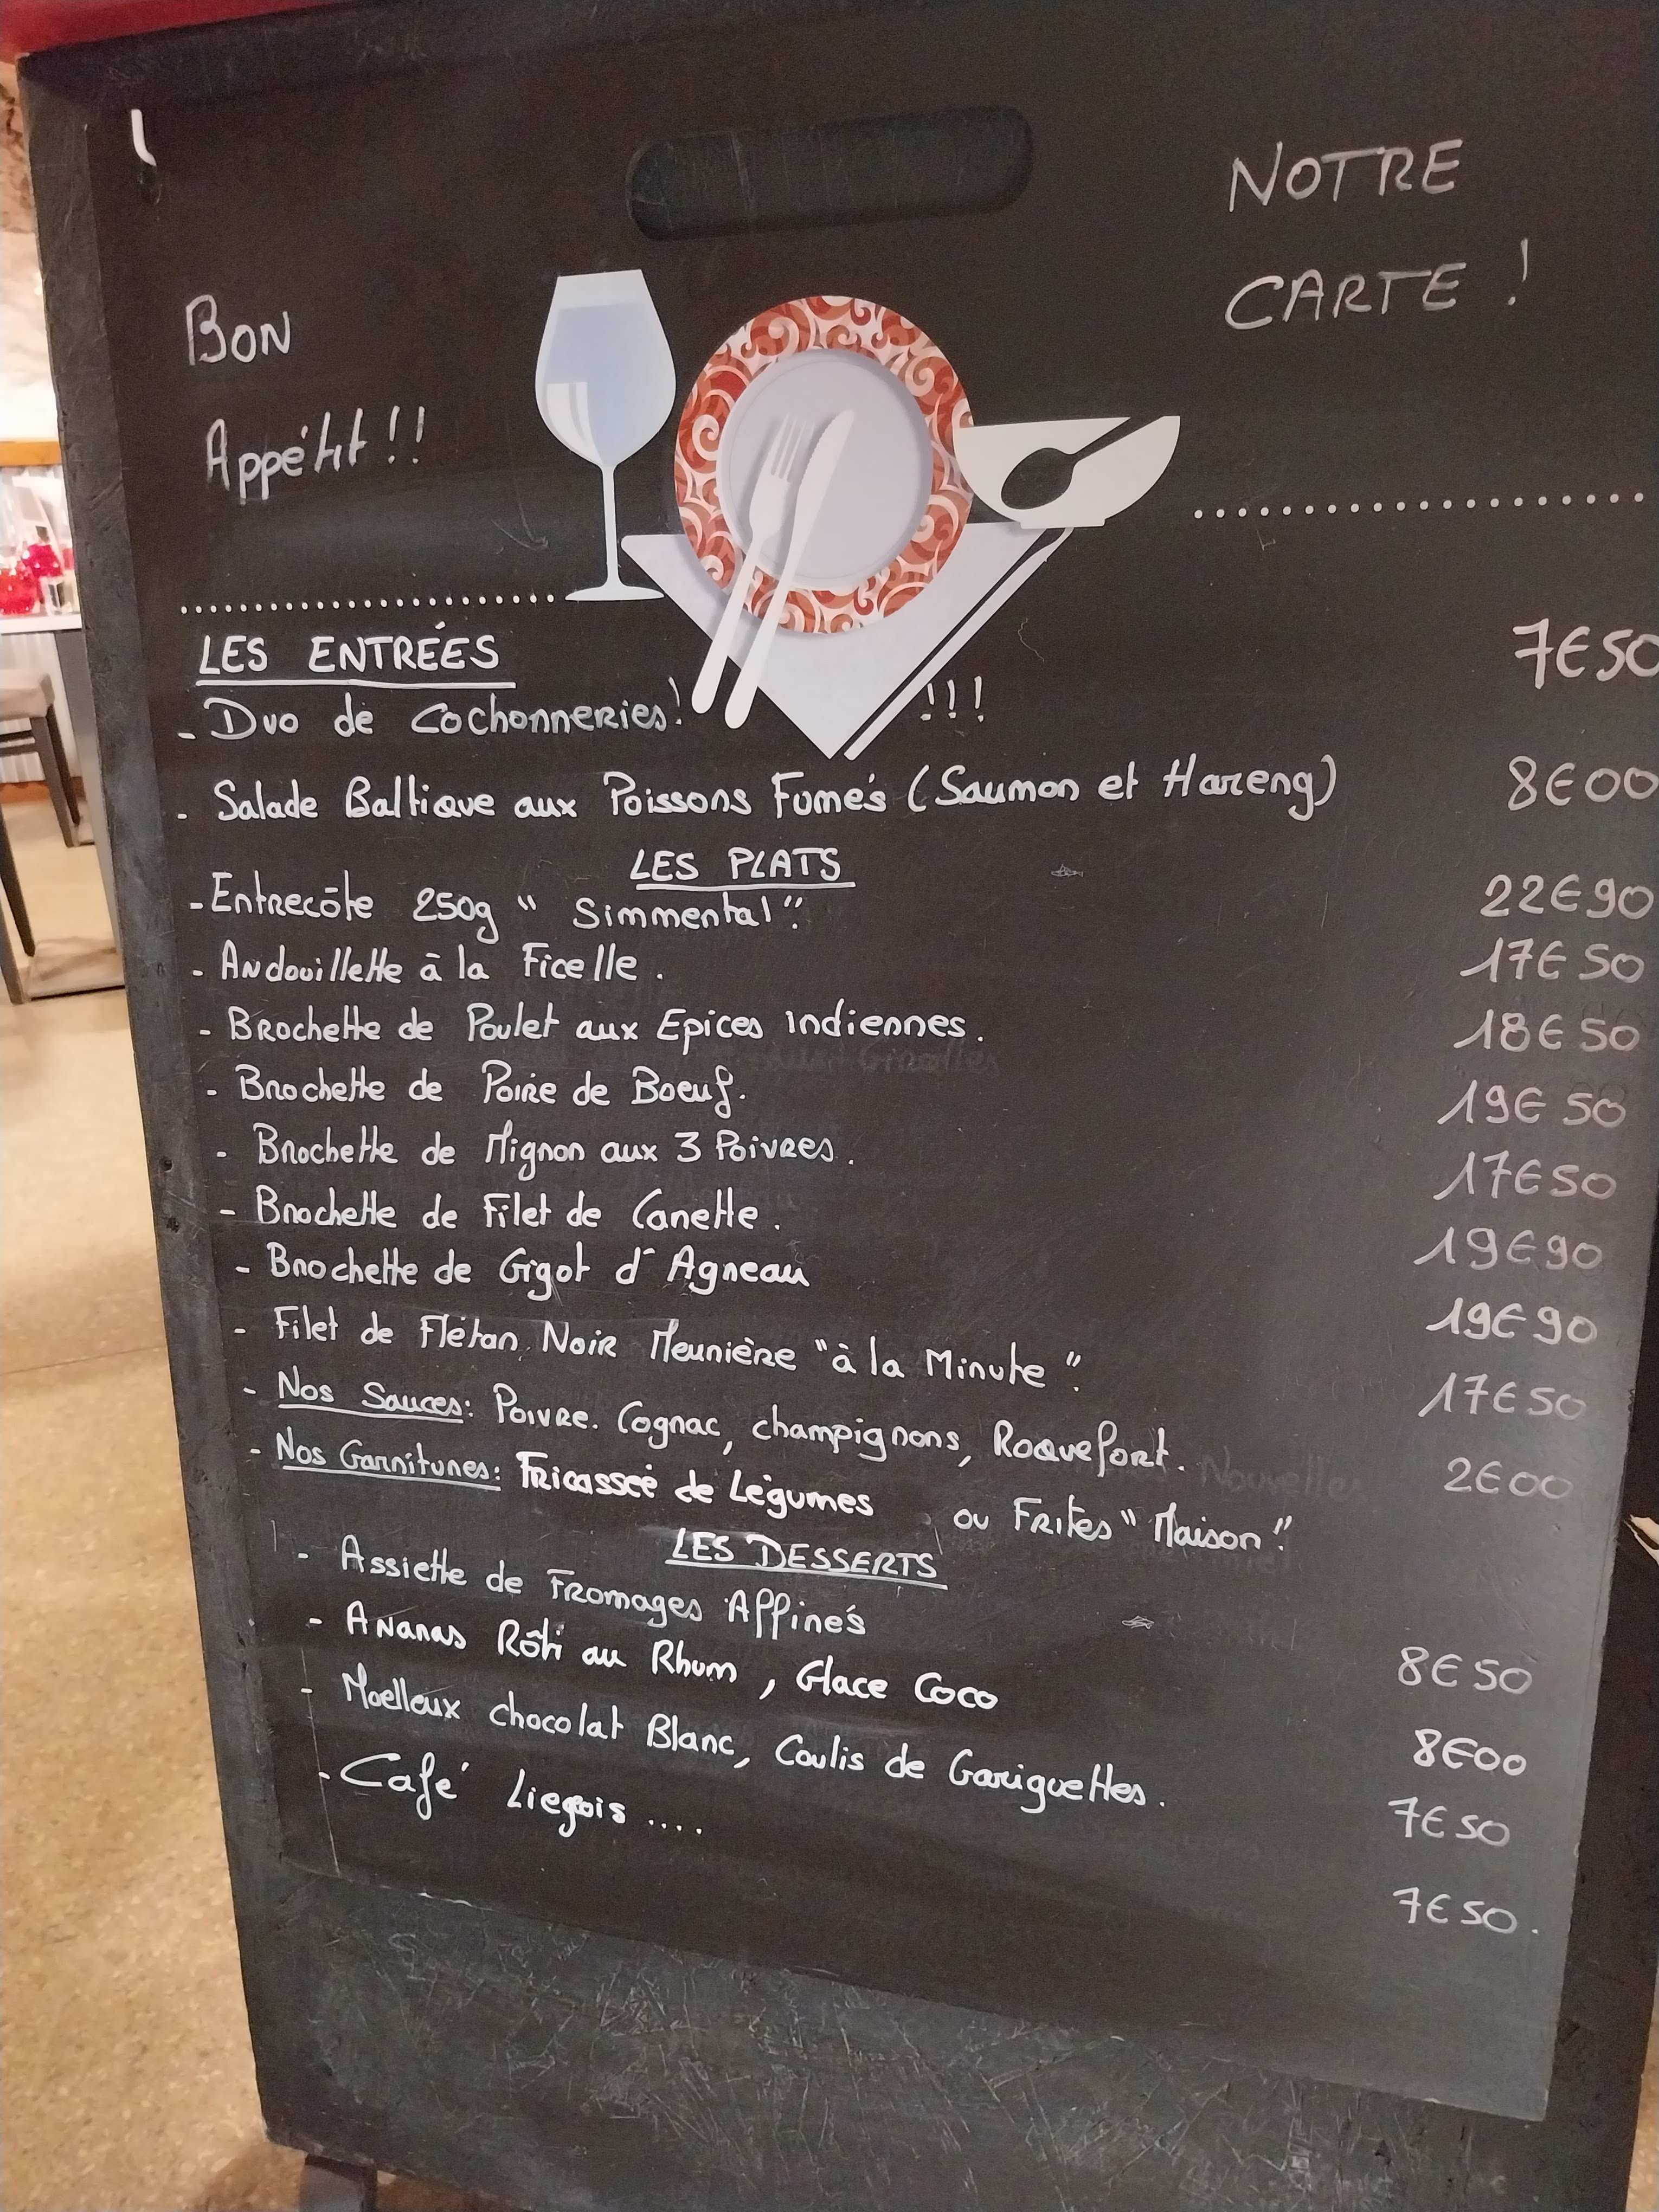 NOTRE
CARTE !
BON
Appétit !!
LES ENTRÉES
- Duo de Cochonneries! !!! 7€50
- Salade Baltique aux Poissons Fumés (Saumon et Hareng) 8€00
LES PLATS
- Entrecôte 250g " Simmental". 22€90
- Andouillette à la Ficelle . 17€50
- Brochette de Poulet aux Epices indiennes . 18€50
- Brochette de Poire de Boeuf. 19€50
- Brochette de Mignon aux 3 Poivres . 17€50
- Brochette de Filet de Canette . 19€90
- Brochette de Gigot d'Agneau 19€90
- Filet de Flétan Noir Meunière "à la Minute ". 17€50
- Nos Sauces: Poivre. Cognac, champignons, Roquefort. 2€00
- Nos Garnitures: Fricassée de Légumes ou Frites "Maison".
LES DESSERTS
- Assiette de Fromages Affinés 8€50
- Ananas Rôti au Rhum , Glace Coco 8€00
- Moelleux chocolat Blanc, Coulis de Gariguettes . 7€50
- Café Liegois .... 7€50.